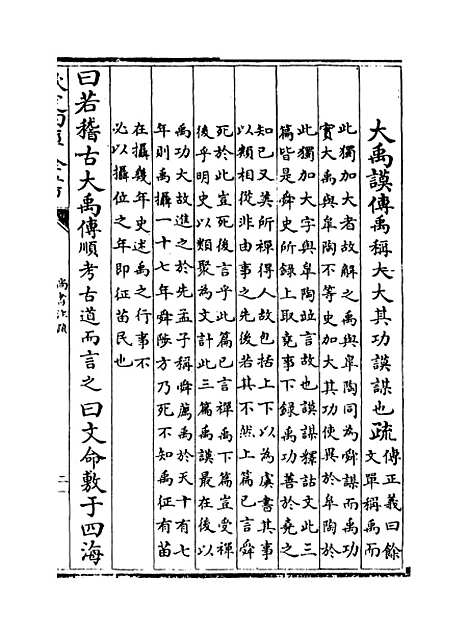 大禹謨傳禹稱大大其功謨謀也疏
傳正義曰餘
文單稱禹而
此獨加大者故解之禹與皋陶同為舜謀而禹功
實大禹與皋陶不等史加大其功使異於皋陶於
此獨加大字與皋陶竝言故也謨謀釋詁文此三
篇皆是舜史所錄上取堯事下錄禹功善於堯之
知已又美所禪得人故包括上下以為虞書其事
以類相從非由事之先後若其不然上篇已言舜
死於此豈死後言乎此篇已言禪禹下篇豈受禪
後乎明史以類聚為文計此三篇禹謨最在後以
禹功大故進之於先孟子稱舜薦禹於天十有七
年則禹攝一十七年舜陟方乃死不知禹征有苗
在攝幾年史述禹之行事不
必以攝位之年即征苗民也
曰若稽古大禹傳順考古道而言之曰文命敷于四海
尚書注疏